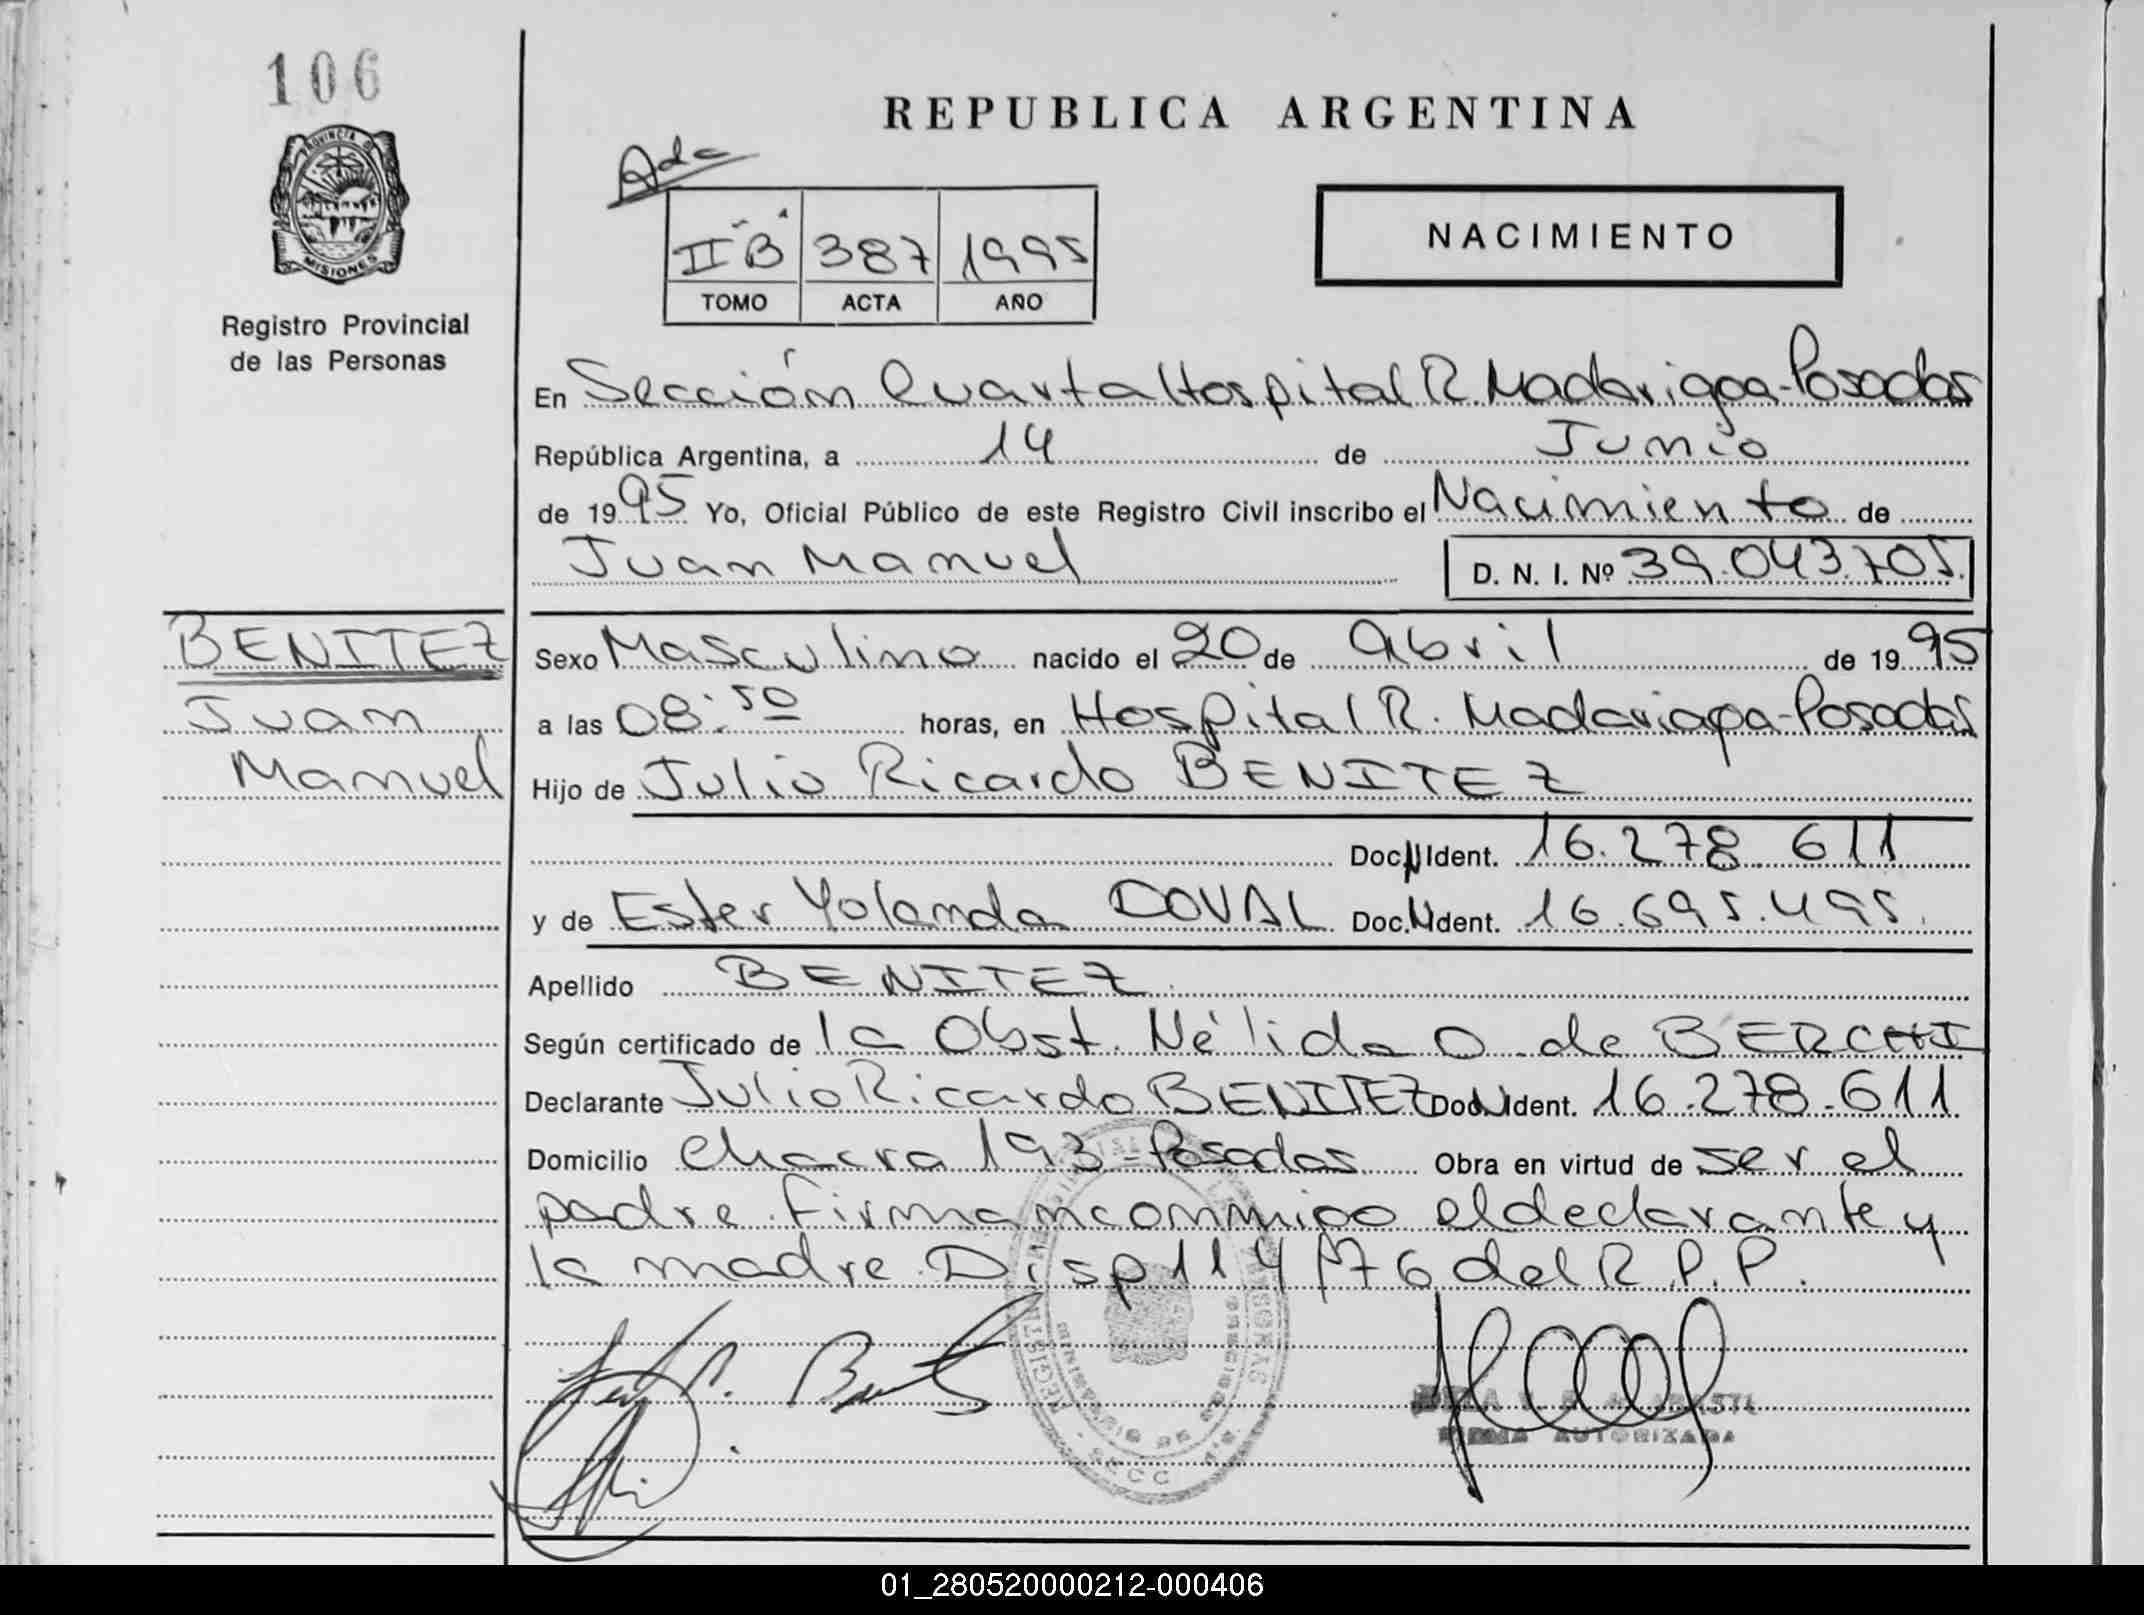 106
PROVINCIA DE
MISIONES
Registro Provincial
de las Personas
REPUBLICA ARGENTINA
Adc
II"B" 387 1995
TOMO ACTA AÑO
NACIMIENTO
En Sección Cuarta Hospital R. Madariaga-Posadas
República Argentina, a 14 de Junio
de 1995 Yo, Oficial Público de este Registro Civil inscribo el Nacimiento de
Juan Manuel D. N. I. Nº 39.043.705.
BENITEZ
Juan
Manuel
Sexo Masculino nacido el 20 de Abril de 1995
a las 08:50 horas, en Hospital R. Madariaga-Posadas
Hijo de Julio Ricardo BENITEZ
Doc.N Ident. 16.278.611
y de Ester Yolanda DOVAL Doc.N Ident. 16.695.495.
Apellido BENITEZ.
Según certificado de la Obst. Nélida O. de BERCHI
Declarante Julio Ricardo BENITEZ Doc.N Ident. 16.278.611
Domicilio Chacra 193-Posadas Obra en virtud de ser el
padre. Firman conmigo el declarante y
la madre. Disp 114/76 del R.P.P.
FIRMA AUTORIZADA
01_280520000212-000406